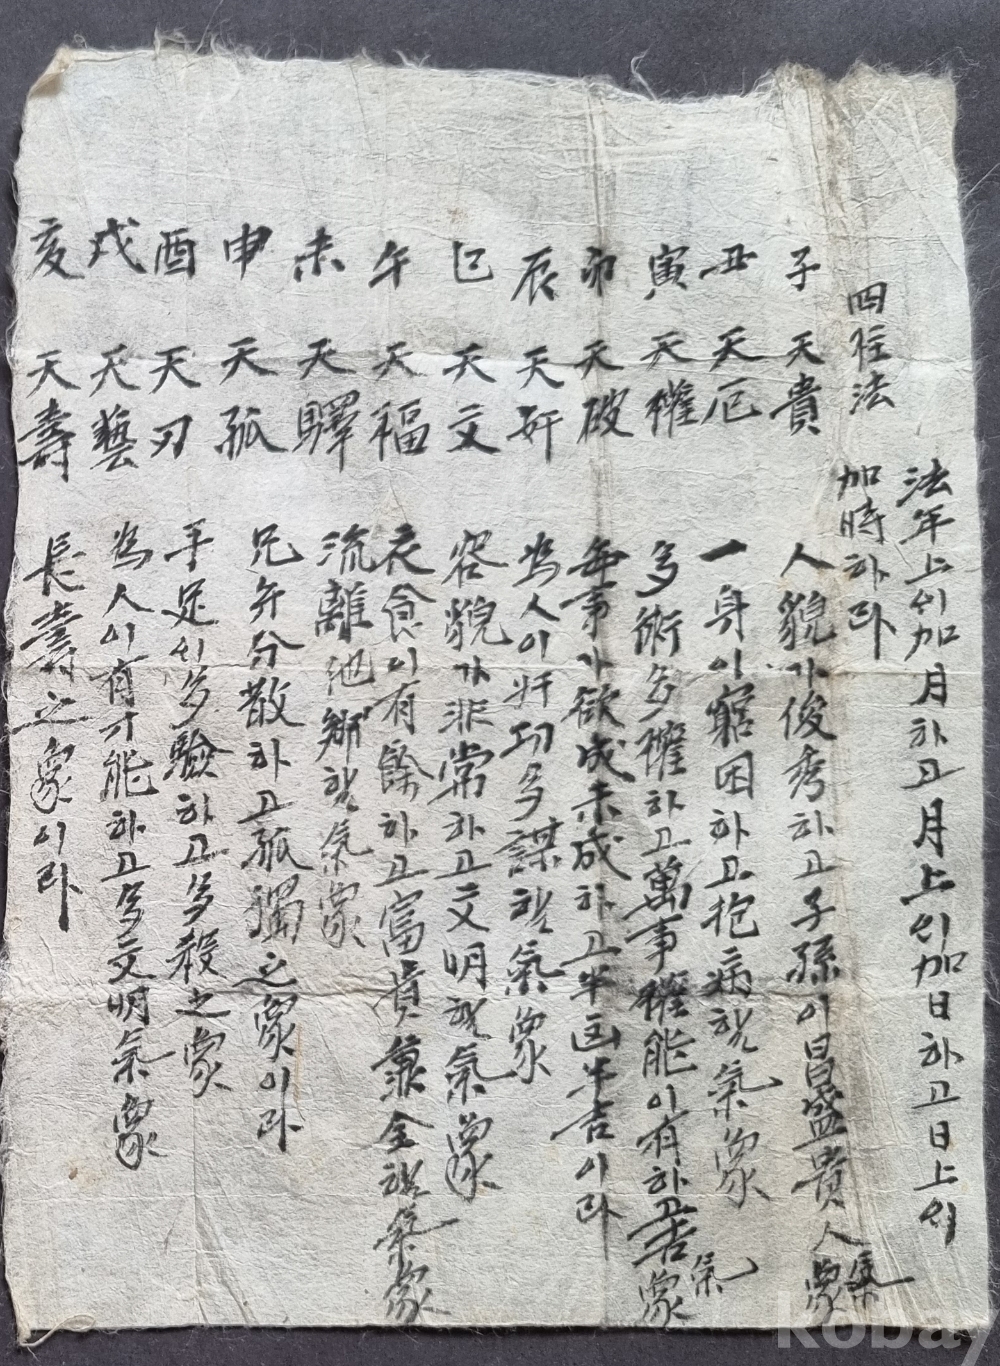 四柱法
法年上에加月하고月上에加日하고日上에
加時하라
子 天貴 人貌가俊秀하고子孫이昌盛貴人氣象
丑 天厄 一身이窮困하고抱病할氣象
寅 天權 多術多權하고萬事權能이有하고吉氣象
卯 天破 每事가欲成未成하고半凶半吉이라
辰 天奸 爲人이奸巧多謀할氣象
巳 天文 容貌가非常하고文明할氣象
午 天福 衣食이有餘하고富貴兼全할氣象
未 天驛 流離他鄕할氣象
申 天孤 兄弟分散하고孤獨之象이라
酉 天刃 手足에多驗하고多殺之象
戌 天藝 爲人이有才能하고多文明氣象
亥 天壽 長壽之象이라
kobay